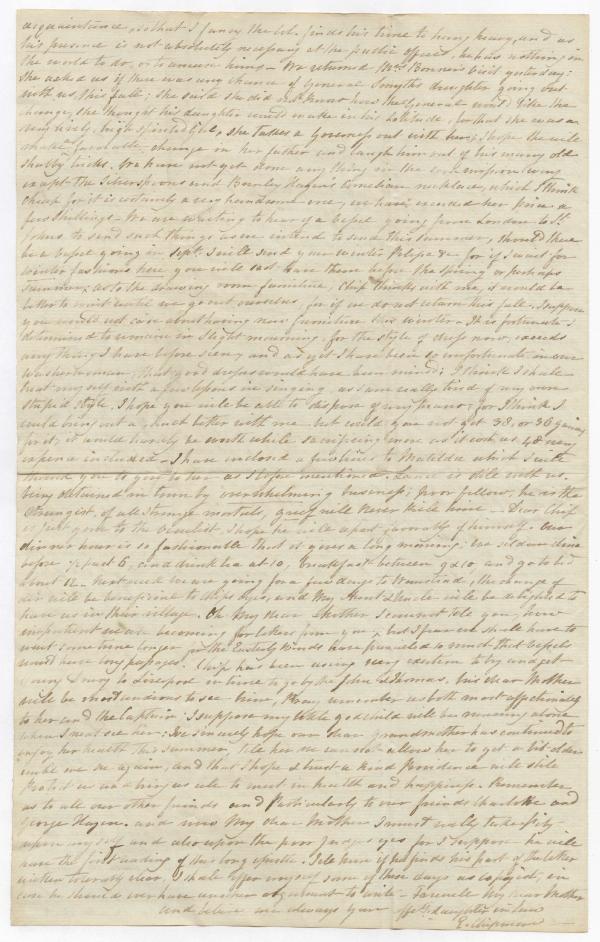 acquaintance, so that I fancy the Col. finds his time to hang heavy, and as
his presence is not absolutely necessary at the Justice office, he has nothing in
the world to do, or to amuse him – We returned Mrs Bonner's visit yesterday:
She asked us if there was any chance of General Smyth's daughter going out
with us, this fall; she said she did not know how the General would like the
change, she thought his daughter would make in his solitude, for that she was a
very lively, high spirited girl, she takes a Governess out with her, I hope she will
make favourable change in her father and laugh him out of his many old
shabby tricks. We have not yet done any thing in the commission way
except the Silver spoons and Hagen's Cornelian necklace, which I think
Cheap for it is certainly a very handsome one, we have exceeded her price a
few shillings – We are waiting to hear of a vessel going from London to St
Johns to send such things as we intend to send this summer, should there
be a vessel going in Sept. I will send your winter Pelisse &c for if I wait for
winter fashions here you will not have them before the spring or perhaps
summer, as to the drawing room furniture, Chip thinks with me, it would be
better to wait until we go out ourselves, for if we do not return this fall, I suppose
you would not care about having new furniture this winter – It is fortunate I
determined to remain in slight mourning for the style of dress now, exceeds
any thing I have before seen, and as yet I have been so unfortunate in our
Washerwoman, that good dresses would have been ruined; I think I shall
treat myself with a few lessons in singing, as I am really tired of my own
stupid style, I hope you will be able to dispose of my piano; for I think I
could bring out a much better with me but could you not get 38, or 36 guineas
for it; it would hardly be worth while sacrificing more as it cost us 48 new
expence included – I have inclosed a few lines to Matilda which I will
thank you to give to her as I before mentioned. Lame is still with us
being detained in town by overwhelming business; poor fellow, he is the
strangest, of all strange mortals, grief will never kill him – Dear Chip
is just gone to the Oculist, I hope he will report favorably of himself. Our
dinner hour is so fashionable that it gives a long morning: we seldom dine
before ½ past 6, and drink tea at 10, breakfast between 9 & 10, and go to bed
about 12 – Next week we are going for a few days to Wanstead, the change of
air will be beneficial to Chip's eyes, and My Aunt & Uncle will be delighted to
have us in their village. Oh My dear Mother I cannot tell you, how
impatient we are becoming for letters from you, but I fear we shall have to
wait some time longer for the Easterly Winds have prevailed so much that vessels
must have long passages. Chip has been using every exertion to try and get
Henry's way to Liverpool in time to go by the John & Thomas, his dear Mother
will be most anxious to see him, Pray remember us both most affectionately
to her and the Captain. I suppose my little godchild will be running alone
when I next see her: We sincerely hope our dear grandmother has continued to
enjoy her health this summer, tell her we can not allow her to get a bit older
until we see again, and that I hope & trust a kind Providence will still
Protect us and bring us all to meet in health and happiness. Remember
us to all our other friends and Particularly to our friends Charlotte and
George Hagen. and now My dear Mother I must really take pity
upon myself and also upon the poor Judge's eyes for I suppose he will
have the first reading of this long epistle. Tell him if he finds his part of the letter
written tolerably clear, I shall offer myself some of these days as copyist, in
case he should ever have another argument to write – Farewell My dear Mother
and believe me always your affect. daughter in law
E. Chipman